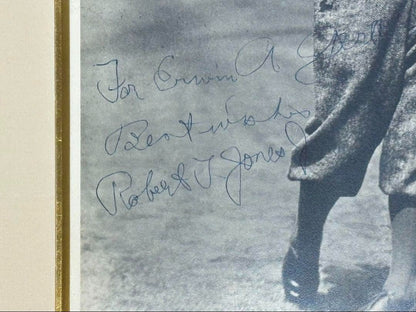 For Erwin A.
Best wishes
Robert T. Jones Jr